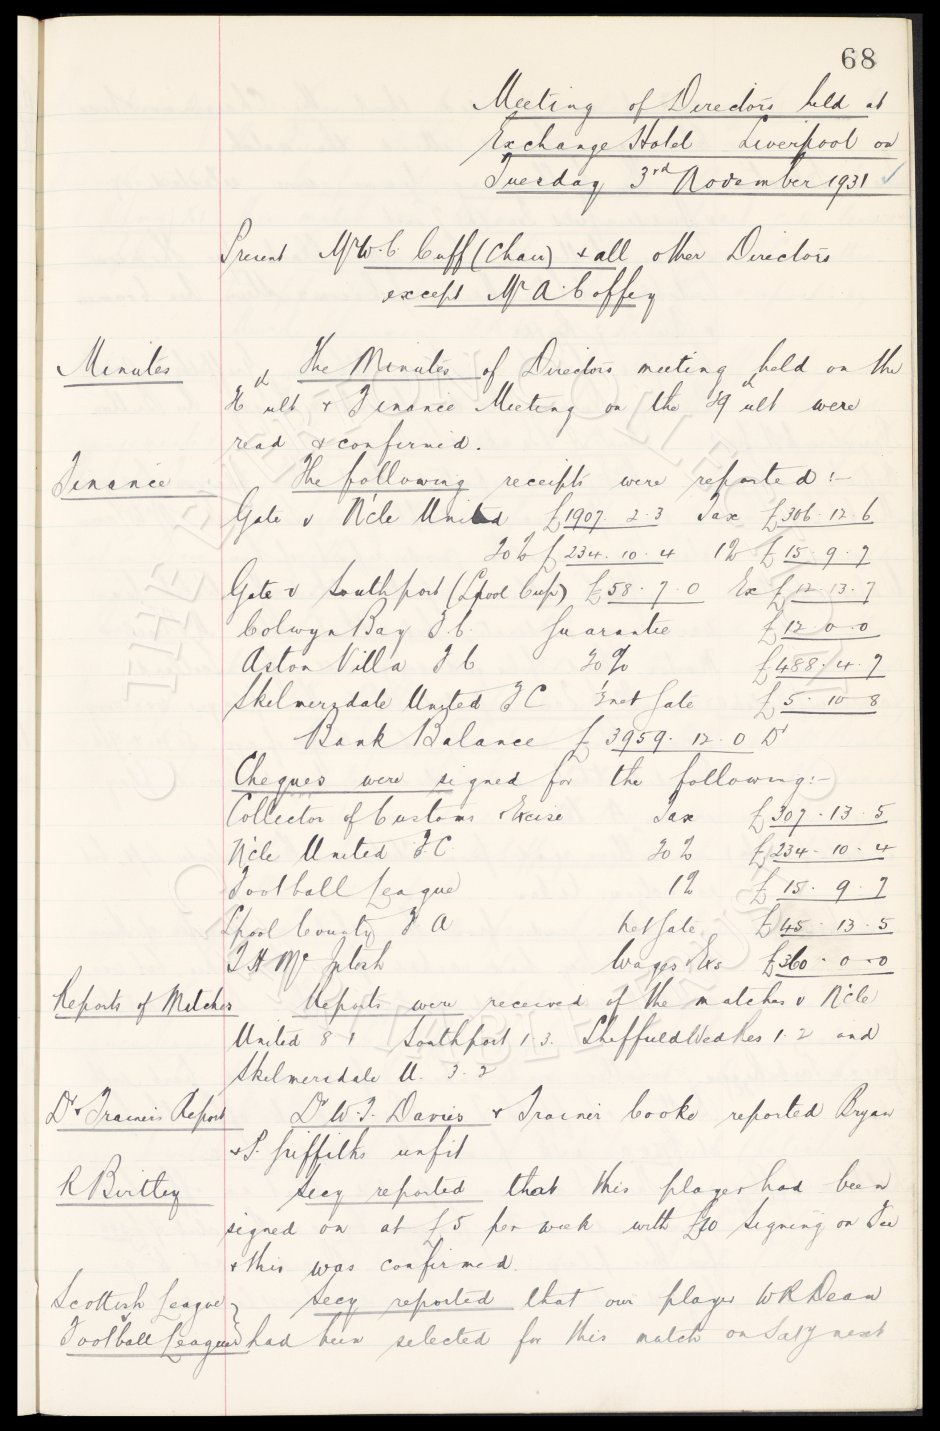 68
Meeting of Directors held at
Exchange Hotel Liverpool on
Tuesday 3rd November 1931
Present Mr W.C. Cuff (Chair) & all other Directors
except Mr A. Coffey
Minutes The Minutes of Directors meeting held on the
ult & Finance Meeting on the ult were
read & confirmed.
Finance The following receipts were reported :-
Gate v N'cle United £1907. 2. 3 Tax £306. 12. 6
20% £234. 10. 4 1% £15. 9. 7
Gate v Southport (L'pool Cup) £58. 7. 0 Ex £12. 13. 7
Colwyn Bay F.C. Guarantee £12. 0. 0
Aston Villa F C 20% £488. 4. 7
Skelmersdale United F C ½ net Gate £5. 10. 8
Bank Balance £3959. 12. 0 Dr
Cheques were signed for the following :-
Collector of Customs & Excise Tax £307. 13. 5
N'cle United F C 20% £234. 10. 4
Football League 1% £15. 9. 7
L'pool County F A Net Gate £45. 13. 5
T H McIntosh Wages & Exs £360. 0. 0
Reports of Matches Reports were received of the matches v N'cle
United 8 1 Southport 1. 3. Sheffield Wed Res 1. 2 and
Skelmersdale U. 3. 2
Dr & Trainers Report Dr W.F. Davies & Trainer Cooke reported Bryan
& P. Griffiths unfit
R Birtley Secy reported that this player had been
signed on at £5 per week with £10 Signing on Fee
& this was confirmed.
Scottish League Secy reported that our player W R Dean
v Football League had been selected for this match on Saty next
THE EVERTON COLLECTION